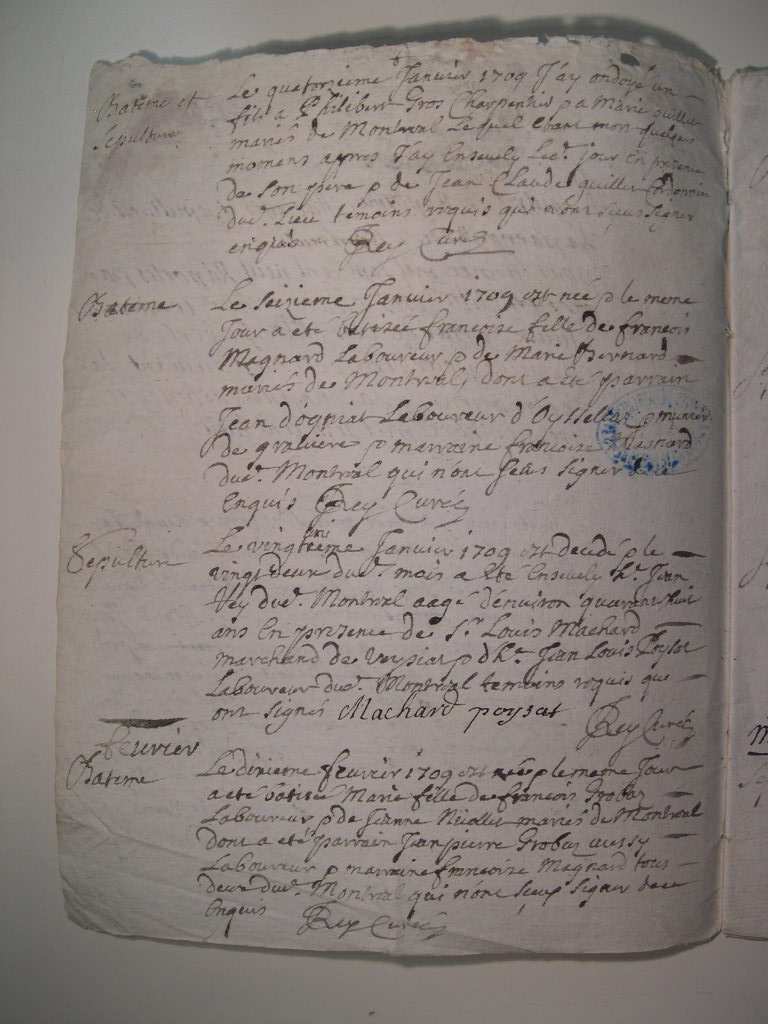 Bateme et
Sepulture
Le quatorzieme Janvier 1709 J'ay ondoyé un
fils a Philibert Gros Charpentier p a Marie quillier
mariés de Montreal Lequel etant mort quelques
momens apres J'ay Ensevely Led. jour En presence
de Son pere p de Jean Claude quillier
dud. Lieu temoins requis qui n'ont sceus Signer
enquis Rey Curé
Bateme
Le Seizieme Janvier 1709 est née p le meme
Jour a eté batizée francoise fille de francois
Magnard Laboureur p de Marie Bernard
mariés de Montreal, dont a eté parrain
Jean d'ogniat Laboureur d'Oyssellaz p
de p marraine francoise Magnard
dud. Montreal qui n'ont sceus signer de ce
Enquis Rey Curé
Sepulture
Le vingt Janvier 1709 est decedé p le
vingt deux dud. mois a eté Ensevely h. Jean
Vey dud. Montreal aagé d'environ quarant huit
ans En presence de Sr. Louis Machard
marchand de Veysiat p d'h. Jean Louis Poysat
Laboureur dud. Montreal temoins requis que
ont signés Machard poysat Rey Curé
feuvrier
Bateme
Le dixieme feuvrier 1709 est née p le meme Jour
a eté batisée Marie fille de francois Grobas
Laboureur p de Jeanne Nicollet mariés de Montreal
dont a eté parrain Jean pierre Grobas aussy
Laboureur p marraine francoise Magnard tous
deux dud. Montreal qui n'ont sceus signer de ce
Enquis Rey Curé